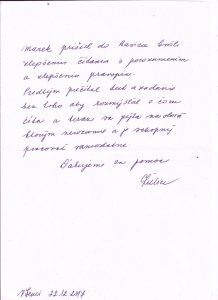 Marek prišiel do Kavica Emôci
zlepšenie čítania s porozumením
a zlepšenie pravopisu
Predtým prečítal text a zadania
bez toho aby rozmýšľal o čom
číta a teraz sa pýta na slová
ktorým nerozumie a je schopný
pracovať samostatne.
Ďakujeme za pomoc
V Senci 22.12.2017